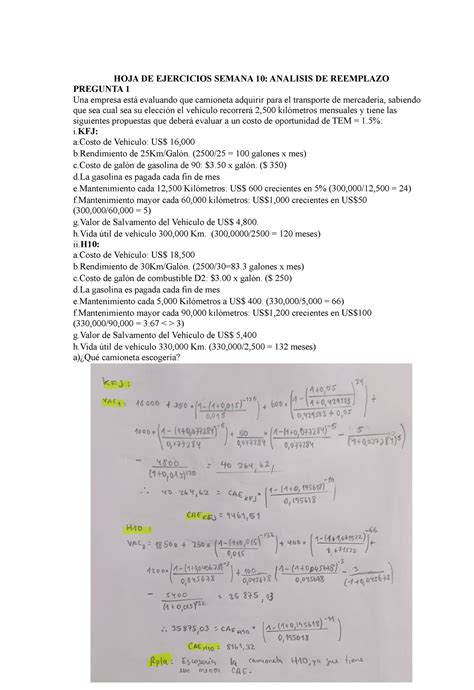 HOJA DE EJERCICIOS SEMANA 10: ANALISIS DE REEMPLAZO
PREGUNTA 1
Una empresa está evaluando que camioneta adquirir para el transporte de mercadería, sabiendo
que sea cual sea su elección el vehículo recorrerá 2,500 kilómetros mensuales y tiene las
siguientes propuestas que deberá evaluar a un costo de oportunidad de TEM = 1.5%:
i.KFJ:
a.Costo de Vehículo: US$ 16,000
b.Rendimiento de 25Km/Galón. (2500/25 = 100 galones x mes)
c.Costo de galón de gasolina de 90: $3.50 x galón. ($ 350)
d.La gasolina es pagada cada fin de mes
e.Mantenimiento cada 12,500 Kilómetros: US$ 600 crecientes en 5% (300,000/12,500 = 24)
f.Mantenimiento mayor cada 60,000 kilómetros: US$1,000 crecientes en US$50
(300,000/60,000 = 5)
g.Valor de Salvamento del Vehículo de US$ 4,800.
h.Vida útil de vehículo 300,000 Km. (300,0000/2500 = 120 meses)
ii.H10:
a.Costo de Vehículo: US$ 18,500
b.Rendimiento de 30Km/Galón. (2500/30=83.3 galones x mes)
c.Costo de galón de combustible D2: $3.00 x galón. ($ 250)
d.La gasolina es pagada cada fin de mes
e.Mantenimiento cada 5,000 Kilómetros a US$ 400. (330,000/5,000 = 66)
f.Mantenimiento mayor cada 90,000 kilómetros: US$1,200 crecientes en US$100
(330,000/90,000 = 3.67 < > 3)
g.Valor de Salvamento del Vehículo de US$ 5,400
h.Vida útil de vehículo 330,000 Km. (330,000/2,500 = 132 meses)
a)¿Qué camioneta escogería?
KFJ:
= 40 264,62,
∴ 40 264,62 = CAE KFJ × (1-(1+0,195618)^-10 / 0,195618)
CAE KFJ = 9461,51
H10:
- 5400 / = 35 875,03
∴ 35875,03 = CAE H10 × (1-(1+0,195618)^-11 / 0,195618)
CAE H10 = 8161,32
Rpta: Escogería la camioneta H10, ya que tiene
un menor CAE.